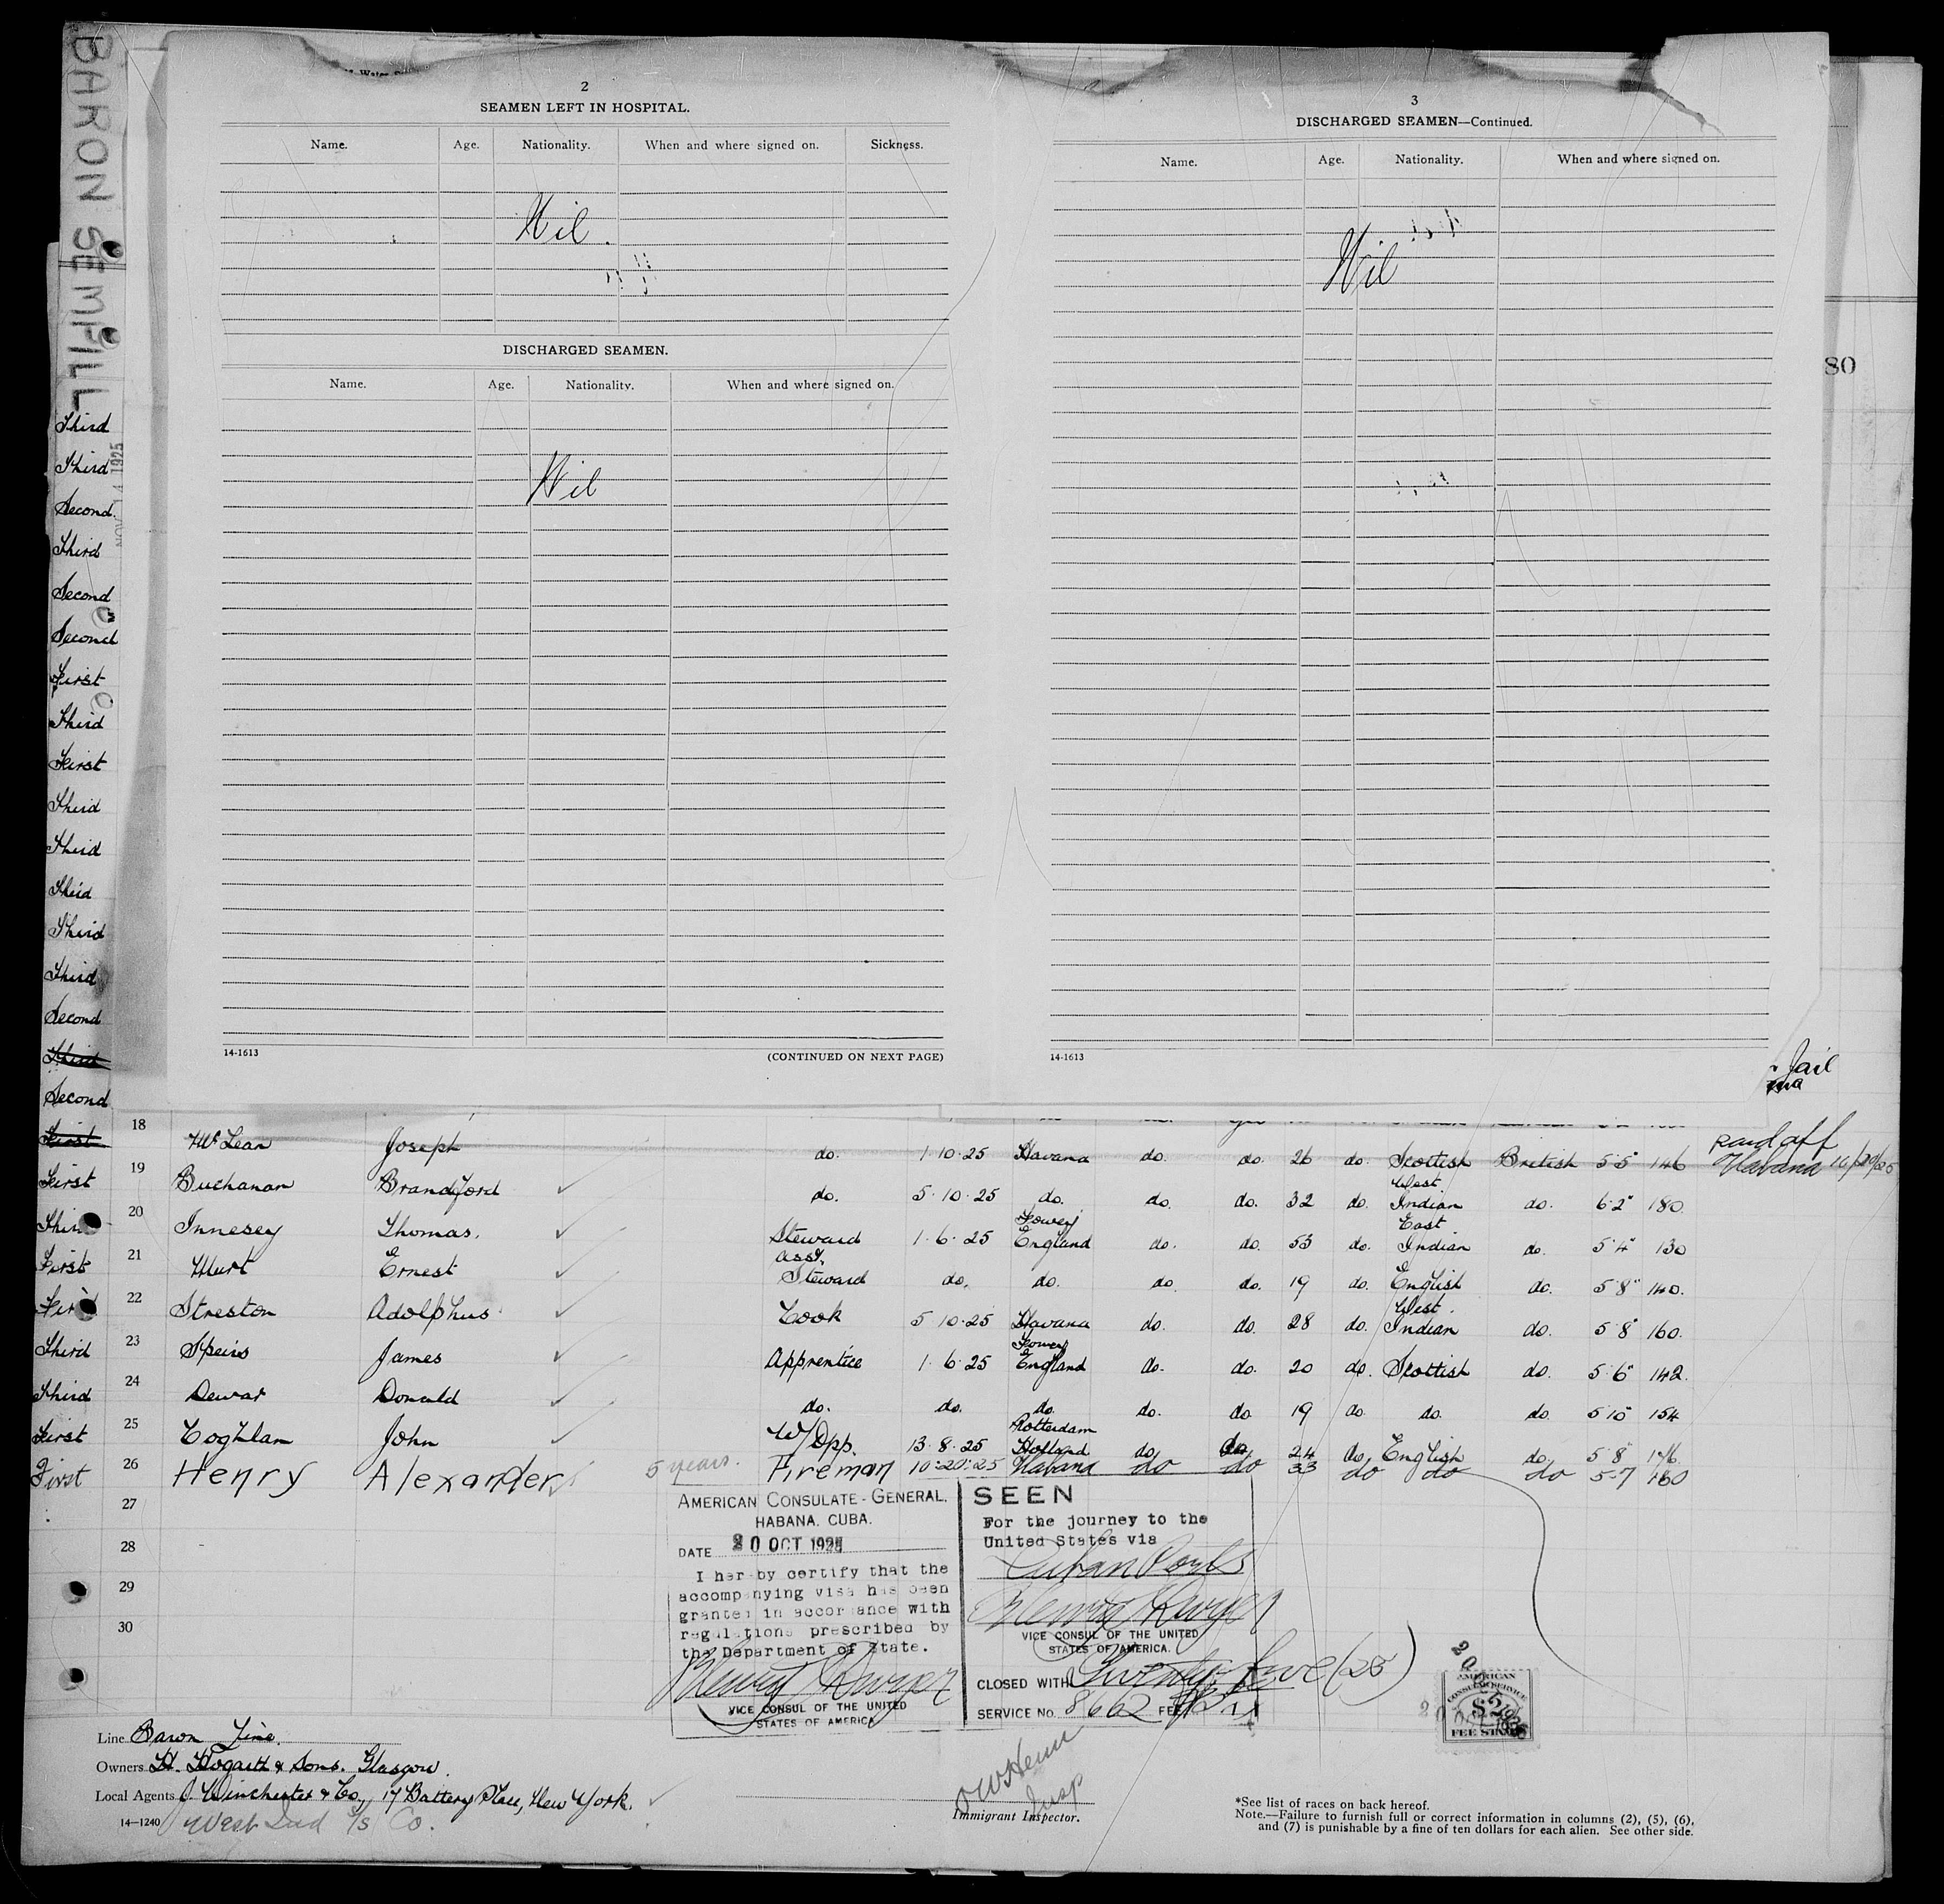 BARON SEMPILL
NOV 4 1925
2
SEAMEN LEFT IN HOSPITAL.
Name. Age. Nationality. When and where signed on. Sickness.
Nil.
DISCHARGED SEAMEN.
Name. Age. Nationality. When and where signed on.
Nil
14-1613 (CONTINUED ON NEXT PAGE)
3
DISCHARGED SEAMEN—Continued.
Name. Age. Nationality. When and where signed on.
Nil
14-1613
80
Third
Third
Second
Third
Second
Second
First
Third
First
Third
Third
Third
Third
Third
Second
Third
Second
Jail
First 18 McLean Joseph do. 1·10·25 Havana do. do. 26 do. Scottish British 5·5" 146 Paid off Habana 10/20/25
First 19 Buchanan Brandford do. 5·10·25 do. do. do. 32 do. West Indian do. 6·2" 180
Third 20 Innesey Thomas. Steward 1·6·25 Fowey England do. do. 53 do. East Indian do. 5·4" 130
First 21 Hurt Ernest Asst. Steward do. do. do. do. 19 do. English do. 5·8" 140.
First 22 Streston Adolphus Cook 5·10·25 Havana do. do. 28 do. West Indian do. 5·8" 160.
Third 23 Speirs James Apprentice 1·6·25 Fowey England do. do. 20 do. Scottish do. 5·6" 142.
Third 24 Dewar Donald do. do. do. do. do 19 do. do. do 5·10" 154
First 25 Coghlan John W/Opp. 13·8·25 Rotterdam Holland do do 24 do. English do. 5·8 176.
First 26 Henry Alexander 5 years. Fireman 10·20·25 Habana do do 33 do do do 5-7 160
27
28
29
30
AMERICAN CONSULATE-GENERAL,
HABANA, CUBA.
DATE 20 OCT 1925
I hereby certify that the
accompanying visa has been
granted in accordance with
regulations prescribed by
the Department of State.
VICE CONSUL OF THE UNITED
STATES OF AMERICA
SEEN
For the journey to the
United States via
Cuban Ports
VICE CONSUL OF THE UNITED
STATES OF AMERICA.
CLOSED WITH Twenty-five (25)
SERVICE No. 8662 FEE
AMERICAN
CONSULAR SERVICE
$2
FEE STAMP
Line Baron Line.
Owners H. Hogarth & Sons. Glasgow.
Local Agents J. Winchester & Co., 17 Battery Place, New York.
14—1240 West Ind S/S Co.
Immigrant Inspector.
Insp
*See list of races on back hereof.
Note.—Failure to furnish full or correct information in columns (2), (5), (6),
and (7) is punishable by a fine of ten dollars for each alien. See other side.